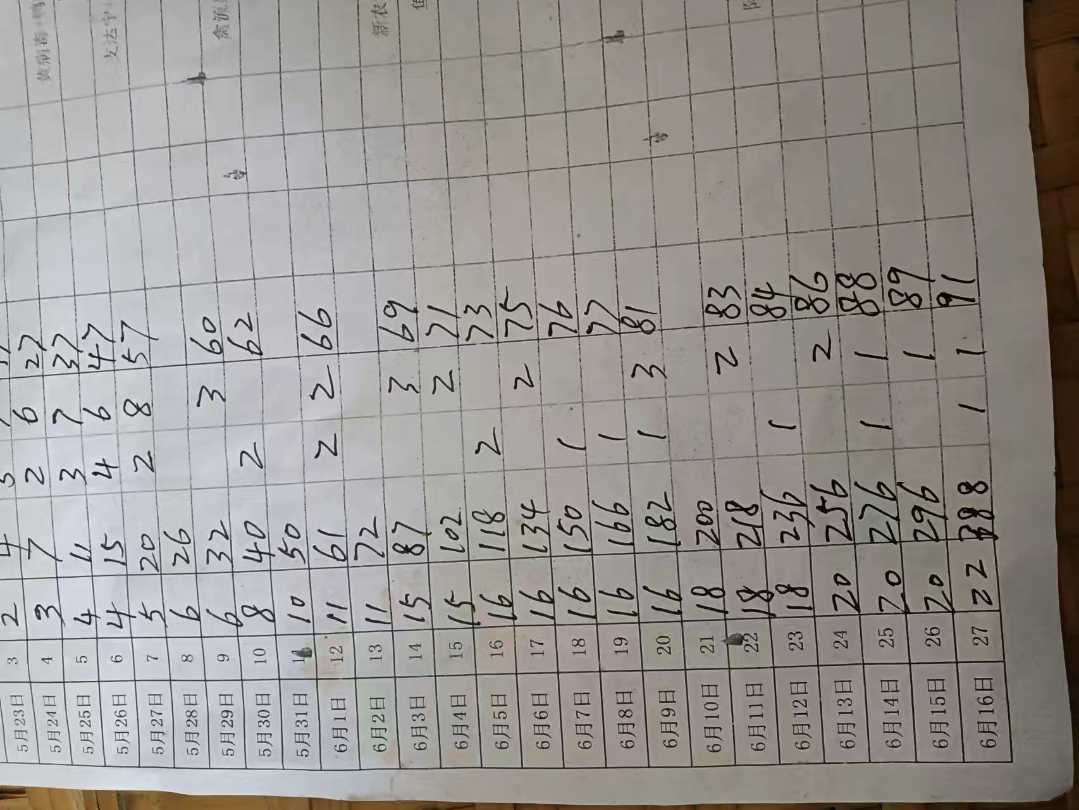 5月23日 3 2 4 5
5月24日 4 3 7 2 6 27 黄病毒
5月25日 5 4 11 3 7 37
5月26日 6 4 15 4 6 47
5月27日 7 5 20 2 8 57
5月28日 8 6 26
5月29日 9 6 32 3 60 禽流
5月30日 10 8 40 2 62
5月31日 11 10 50
6月1日 12 11 61 2 2 66
6月2日 13 11 72
6月3日 14 15 87 3 69 新农
6月4日 15 15 102 2 71
6月5日 16 16 118 2 73
6月6日 17 16 134 2 75
6月7日 18 16 150 1 76
6月8日 19 16 166 1 77
6月9日 20 16 182 1 3 81
6月10日 21 18 200
6月11日 22 18 218 2 83
6月12日 23 18 236 1 84
6月13日 24 20 256 2 86
6月14日 25 20 276 1 1 88
6月15日 26 20 296 1 89
6月16日 27 22 1 1 91